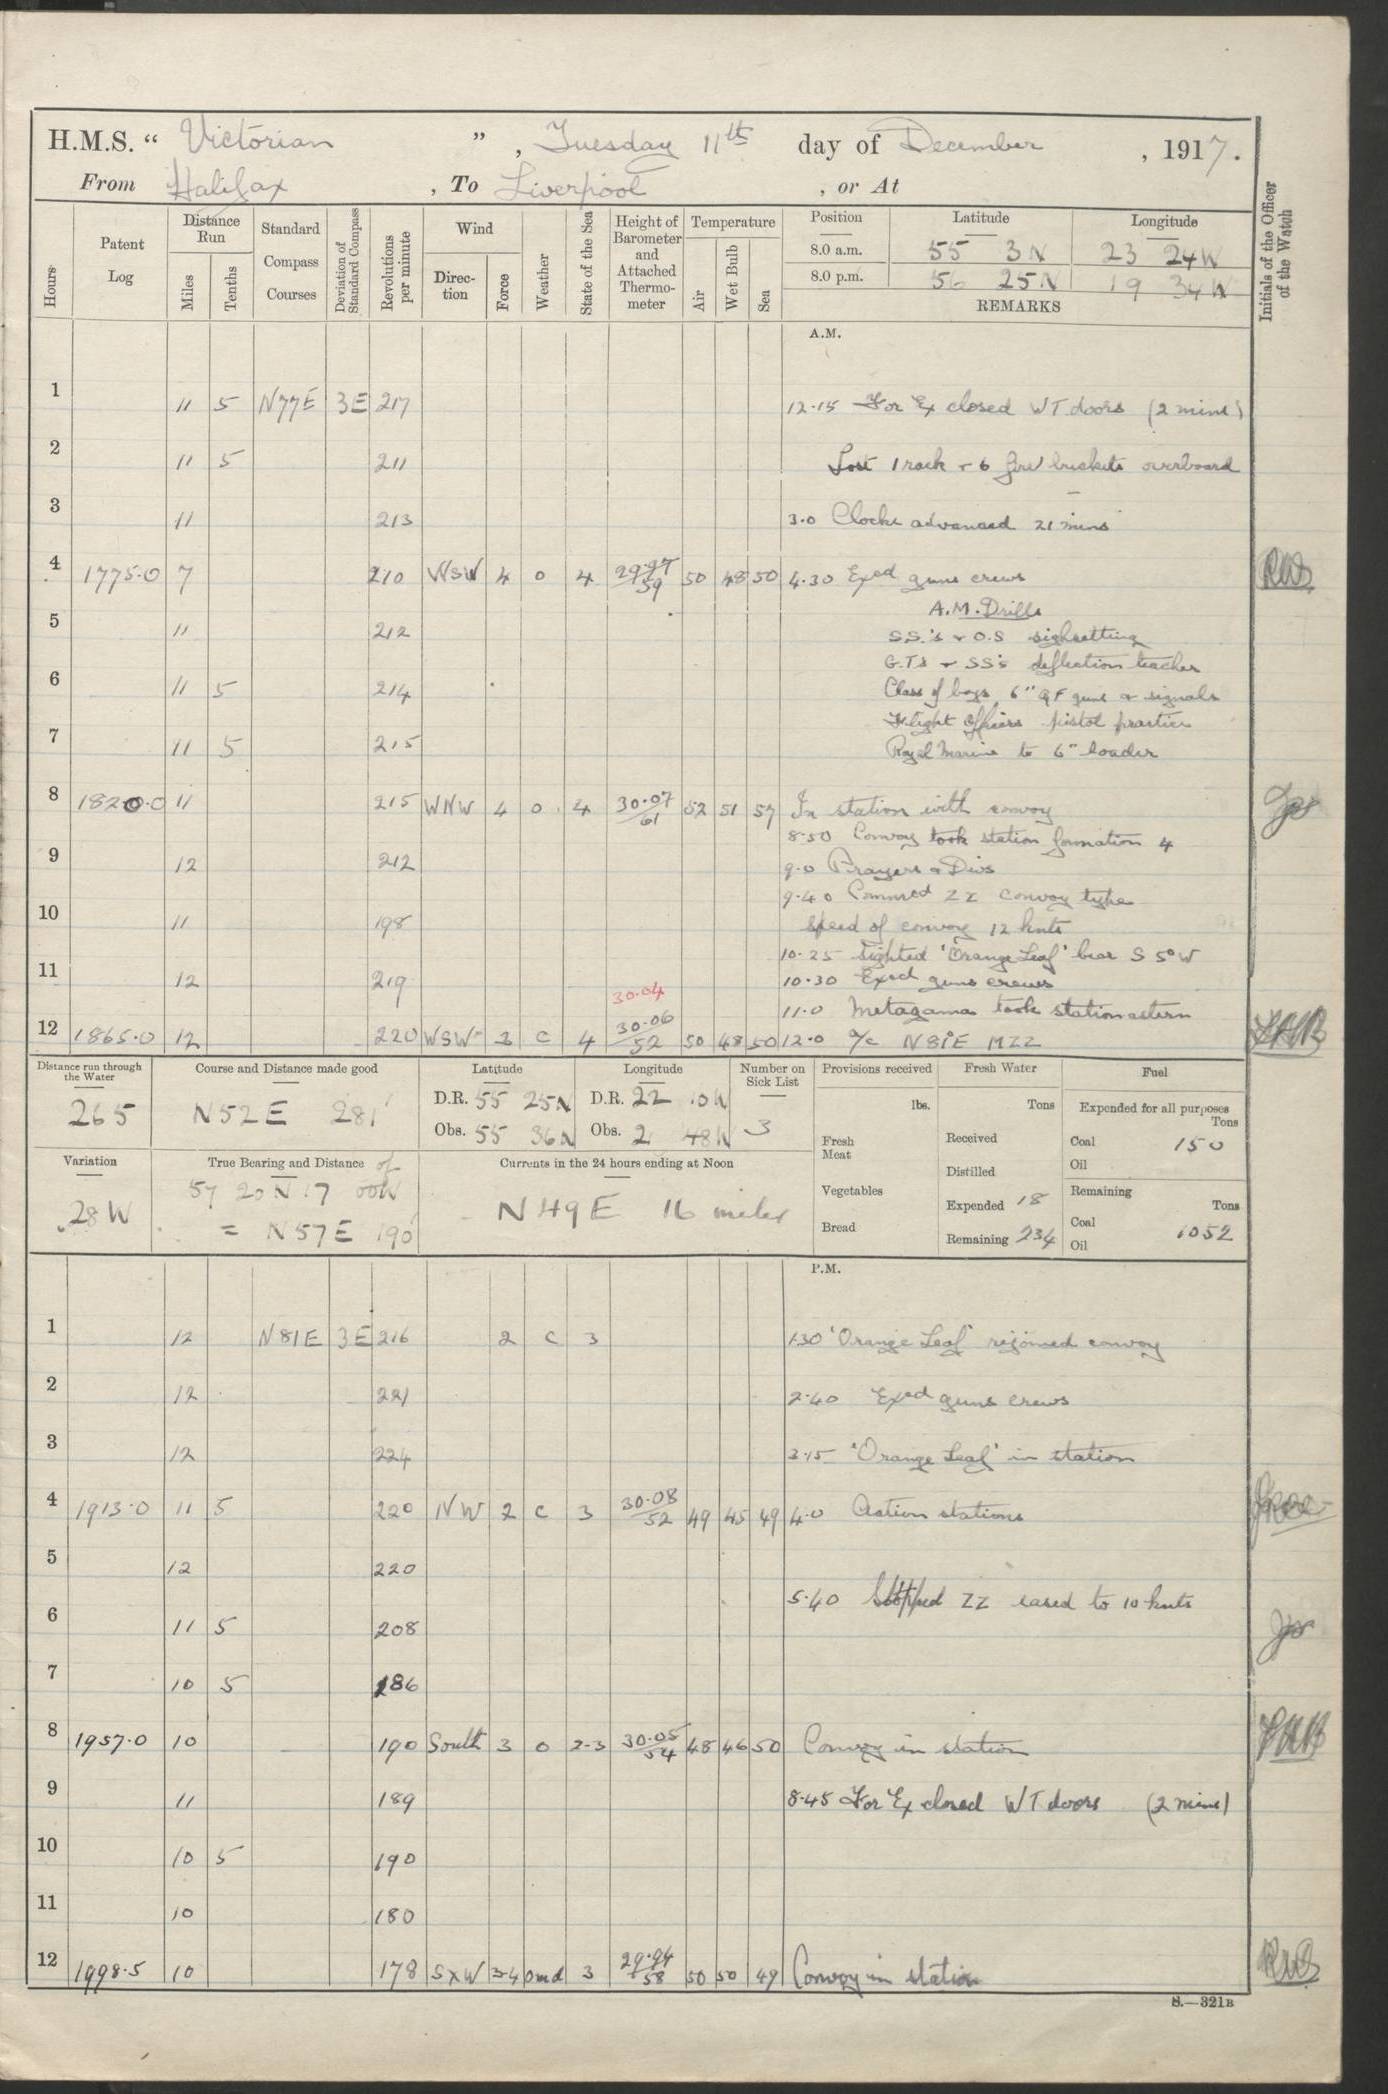 H.M.S. “ Victorian ” , Tuesday 11th day of December , 1917.
From Halifax , To Liverpool , or At
Hours
Patent Log
Distance Run
Miles
Tenths
Standard Compass Courses
Deviation of Standard Compass
Revolutions per minute
Wind
Direction
Force
Weather
State of the Sea
Height of Barometer and Attached Thermometer
Temperature
Air
Wet Bulb
Sea
Position Latitude Longitude
8.0 a.m. 55 3N 23 24W
8.0 p.m. 56 25N 19 34W
REMARKS
Initials of the Officer of the Watch
A.M.
1 11 5 N77E 3E 217 12.15 For Ex closed WT doors (2 mins)
2 11 5 211 Lost 1 rack + 6 fire buckets overboard
3 11 213 3.0 Clocks advanced 21 mins
4 1775.0 7 210 WSW 4 0 4 29.97/59 50 48 50 4.30 Exed guns crews
A.M. Drills
5 11 212 S.S.'s + O.S sightsetting
G.T's + SS's deflection teacher
6 11 5 214 Class of boys 6" QF guns + signals
Flight Officers pistol practice
7 11 5 215 Royal Marine to 6" loader
8 1820.0 11 215 WNW 4 0 4 30.07/61 52 51 57 In station with convoy
8.50 Convoy took station formation 4
9 12 212 9.0 Prayers + Divs
9.40 Commced ZZ convoy type
10 11 198 speed of convoy 12 knts
10.25 Sighted 'Orange Leaf' bear S 5° W
11 12 219 10.30 Exed guns crews
30.04
11.0 Metagama took station astern
12 1865.0 12 220 WSW 3 C 4 30.06/52 50 48 50 12.0 a/c N81E MZZ
Distance run through the Water
265
Course and Distance made good
N52E 281'
Latitude
D.R. 55 25N
Obs. 55 36N
Longitude
D.R. 22 10W
Obs. 21 48W
Number on Sick List
3
Provisions received
lbs.
Fresh Meat
Vegetables
Bread
Fresh Water
Tons
Received
Distilled
Expended 18
Remaining 234
Fuel
Expended for all purposes
Tons
Coal 150
Oil
Remaining
Tons
Coal 1052
Oil
Variation
28W
True Bearing and Distance of
57 20N 17 00W
= N57E 190'
Currents in the 24 hours ending at Noon
N49E 16 miles
P.M.
1 12 N81E 3E 216 2 C 3 1.30 'Orange Leaf' rejoined convoy
2 12 221 2.40 Exed guns crews
3 12 224 3.15 'Orange Leaf' in station
4 1913.0 11 5 220 NW 2 C 3 30.08/52 49 45 49 4.0 Action stations
5 12 220
5.40 Stopped ZZ eased to 10 knts
6 11 5 208
7 10 5 186
8 1957.0 10 190 South 3 0 2-3 30.05/54 48 46 50 Convoy in station
9 11 189 8.45 For Ex closed WT doors (2 mins)
10 10 5 190
11 10 180
12 1998.5 10 178 SxW 3-4 omd 3 29.94/58 50 50 49 Convoy in station
S.—321B